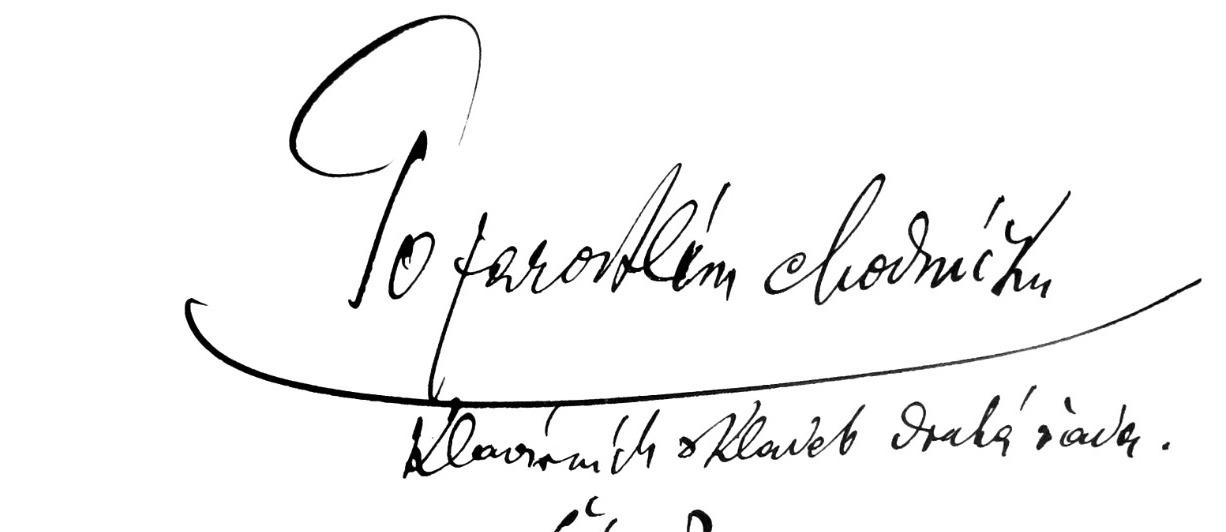 Po zarostlém chodníčku
Klavírních skladeb druhá řada.